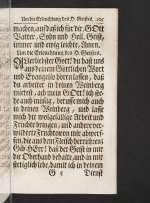 Um die Erleuchtung des H. Geistes. 105
machen, auf daß ich für dir GOtt
Vatter, Sohn und Heil. Geist,
immer und ewig leiche, Amen.
Um die Erleuchtung des H. Geistes.
Allerliebster Gott! du hast uns
aus deinem Göttlichen Wort
und Evangelio hören lassen, daß
du arbeiter in deinen Weinberg
mietest, ach mein GOtt! ich ste-
he auch müssig, beruffe mich auch
in deinen Weinberg, und lasse
mich dir wolgefällige Arbeit und
Früchte bringen, und andere vor-
Früchte von mir abwerf-
fen, die zum Fleisch herrühren
Gib HErr! daß der Geist in mir
die Oberhand behalte, und in deinem
lieb, damit ich in deinem
G 5 Dienst